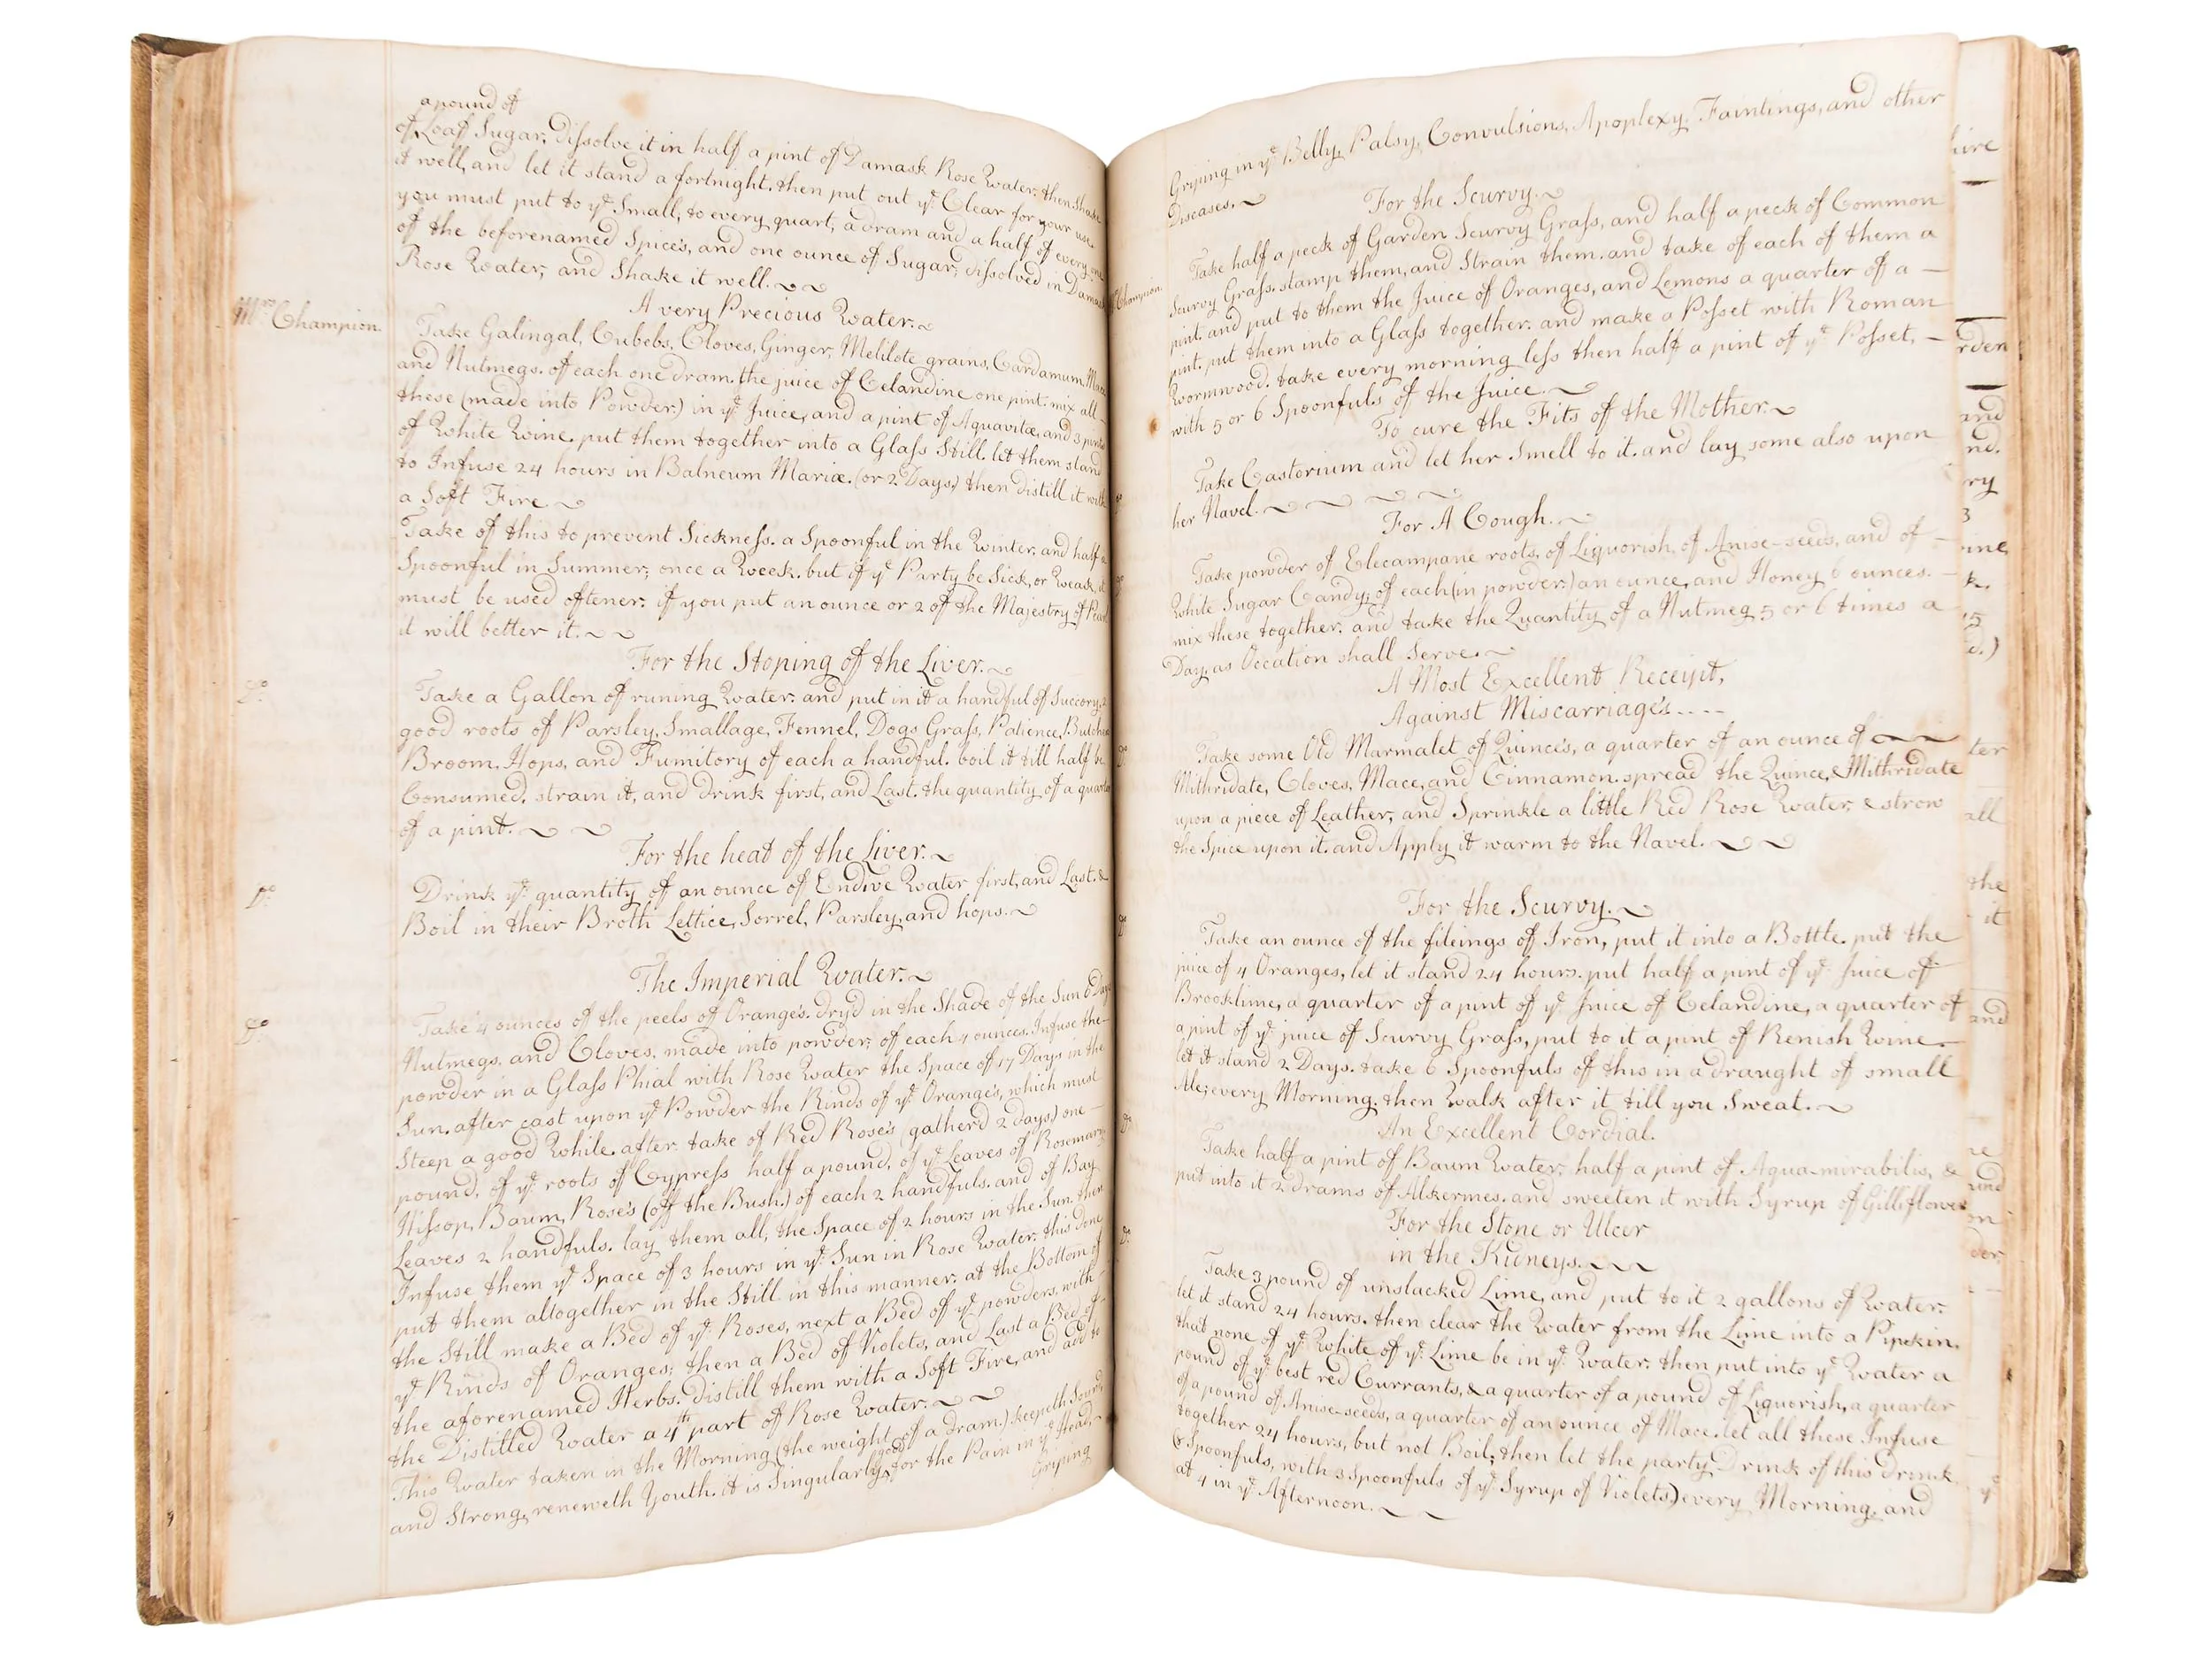 a pound of
of Loaf Sugar, dissolve it in half a pint of Damask Rose Water, then shake
it well, and let it stand a fortnight. then put out yᵉ Clear for your use.
you must put to yᵉ Small, to every quart, a dram and a half of every one
of the beforenamed Spices, and one ounce of Sugar, dissolved in Damask
Rose Water, and Shake it well.
A very Precious Water.
Mʳˢ Champion.
Take Galingal, Cubebs, Cloves, Ginger, Melilote, grains, Cardamum, Mace
and Nutmegs. of each one dram. the juice of Celandine one pint. mix all
these (made into Powder) in yᵉ Juice, and a pint of Aquavitæ, and 3 pints
of White Wine. put them together into a Glass Still. let them stand
to Infuse 24 hours in Balneum Mariæ. (or 2 Days) then distill it with
a Soft Fire
Take of this to prevent Sickness. a Spoonful in the Winter, and half a
Spoonful in Summer; once a Week. but if yᵉ Party be Sick, or Weak, it
must be used oftener. if you put an ounce or 2 of the Majestry of Pearl
it will better it.
For the Stoping of the Liver.
Dº
Take a Gallon of runing Water. and put in it a handful of Succory, 2
good roots of Parsley, Smallage, Fennel, Dogs Grass, Patience, Butchers
Broom, Hops, and Fumitory of each a handful. boil it till half be
Consumed. strain it, and drink first, and Last. the quantity of a quarter
of a pint.
For the heat of the Liver.
Dº
Drink yᵉ quantity of an ounce of Endive Water first, and Last. &
Boil in their Broth Lettice, Sorrel, Parsley, and hops.
The Imperial Water.
Dº
Take 4 ounces of the peels of Oranges. dryd in the Shade of the Sun 6 Days
Nutmegs, and Cloves, made into powder, of each 4 ounces. Infuse the
powder in a Glass Phial with Rose Water the Space of 17 Days in the
Sun. after cast upon yᵉ Powder the Rinds of yᵉ Oranges, which must
Steep a good While. after take of Red Roses (gatherd 2 days) one
pound, of yᵉ roots of Cypress half a pound, of yᵉ Leaves of Rosemary
Hissop, Baum, Roses (off the Bush) of each 2 handfuls. and of Bay
Leaves 2 handfuls. lay them all, the Space of 2 hours in the Sun. then
Infuse them yᵉ Space of 3 hours in yᵉ Sun in Rose Water. this done
put them altogether in the Still in this manner. at the Bottom of
the Still make a Bed of yᵉ Roses, next a Bed of yᵉ powders, with
yᵉ Rinds of Oranges; then a Bed of Violets, and Last a Bed of
the aforenamed Herbs. Distill them with a Soft Fire, and add to
the Distilled Water a 4ᵗʰ part of Rose Water.
This Water taken in the Morning (the weight of a dram) keepeth Sound
and Strong, reneweth Youth. it is Singularly good for the Pain in yᵉ Head
Griping
Griping in yᵉ Belly, Palsy, Convulsions, Apoplexy, Faintings, and other
Diseases.
For the Scurvy.
Champion.
Take half a peck of Garden Scurvy Grass, and half a peck of Common
Scurvy Grass. stamp them, and Strain them. and take of each of them a
pint. and put to them the Juice of Oranges, and Lemons a quarter of a
pint. put them into a Glass together. and make a Posset with Roman
Wormwood. take every morning less then half a pint of yᵉ Posset,
with 5 or 6 Spoonfuls of the Juice.
To cure the Fits of the Mother.
Take Castorium and let her Smell to it. and lay some also upon
her Navel.
For A Cough.
Take powder of Elecampane roots, of Liquorish, of Anise-seeds, and of
White Sugar Candy, of each (in powder) an ounce, and Honey 6 ounces.
mix these together. and take the Quantity of a Nutmeg 5 or 6 times a
Day, as Occation shall Serve.
A Most Excellent Receipt,
Against Miscarriages
Dº
Take some Old Marmalet of Quinces, a quarter of an ounce of
Mithridate, Cloves, Mace, and Cinnamon. spread the Quince, & Mithridate
upon a piece of Leather, and Sprinkle a little Red Rose Water, & strow
the Spice upon it. and Apply it warm to the Navel.
For the Scurvy.
Dº
Take an ounce of the fileings of Iron, put it into a Bottle. put the
juice of 4 Oranges, let it stand 24 hours. put half a pint of yᵉ Juice of
Brooklime, a quarter of a pint of yᵉ Juice of Celandine, a quarter of
a pint of yᵉ juice of Scurvy Grass, put to it a pint of Renish Wine
let it stand 2 Days. take 6 Spoonfuls of this in a draught of small
Ale; every Morning, then Walk after it till you Sweat.
An Excellent Cordial.
Dº
Take half a pint of Baum Water, half a pint of Aqua-mirabilis, &
put into it 2 drams of Alkermes. and sweeten it with Syrup of Gilliflower
For the Stone or Ulcer
in the Kidneys.
Dº
Take 3 pound of unslacked Lime, and put to it 2 gallons of Water.
let it stand 24 hours. then clear the Water from the Lime into a Pipekin,
that none of yᵉ White of yᵉ Lime be in yᵉ Water. then put into yᵉ Water a
pound of yᵉ best red Currants, & a quarter of a pound of Liquorish, a quarter
of a pound of Anise-seeds, a quarter of an ounce of Mace. let all these Infuse
together 24 hours, but not Boil; then let the party Drink of this drink
Spoonfuls, with 3 Spoonfuls of yᵉ Syrup of Violets) every Morning, and
at 4 in yᵉ Afternoon.